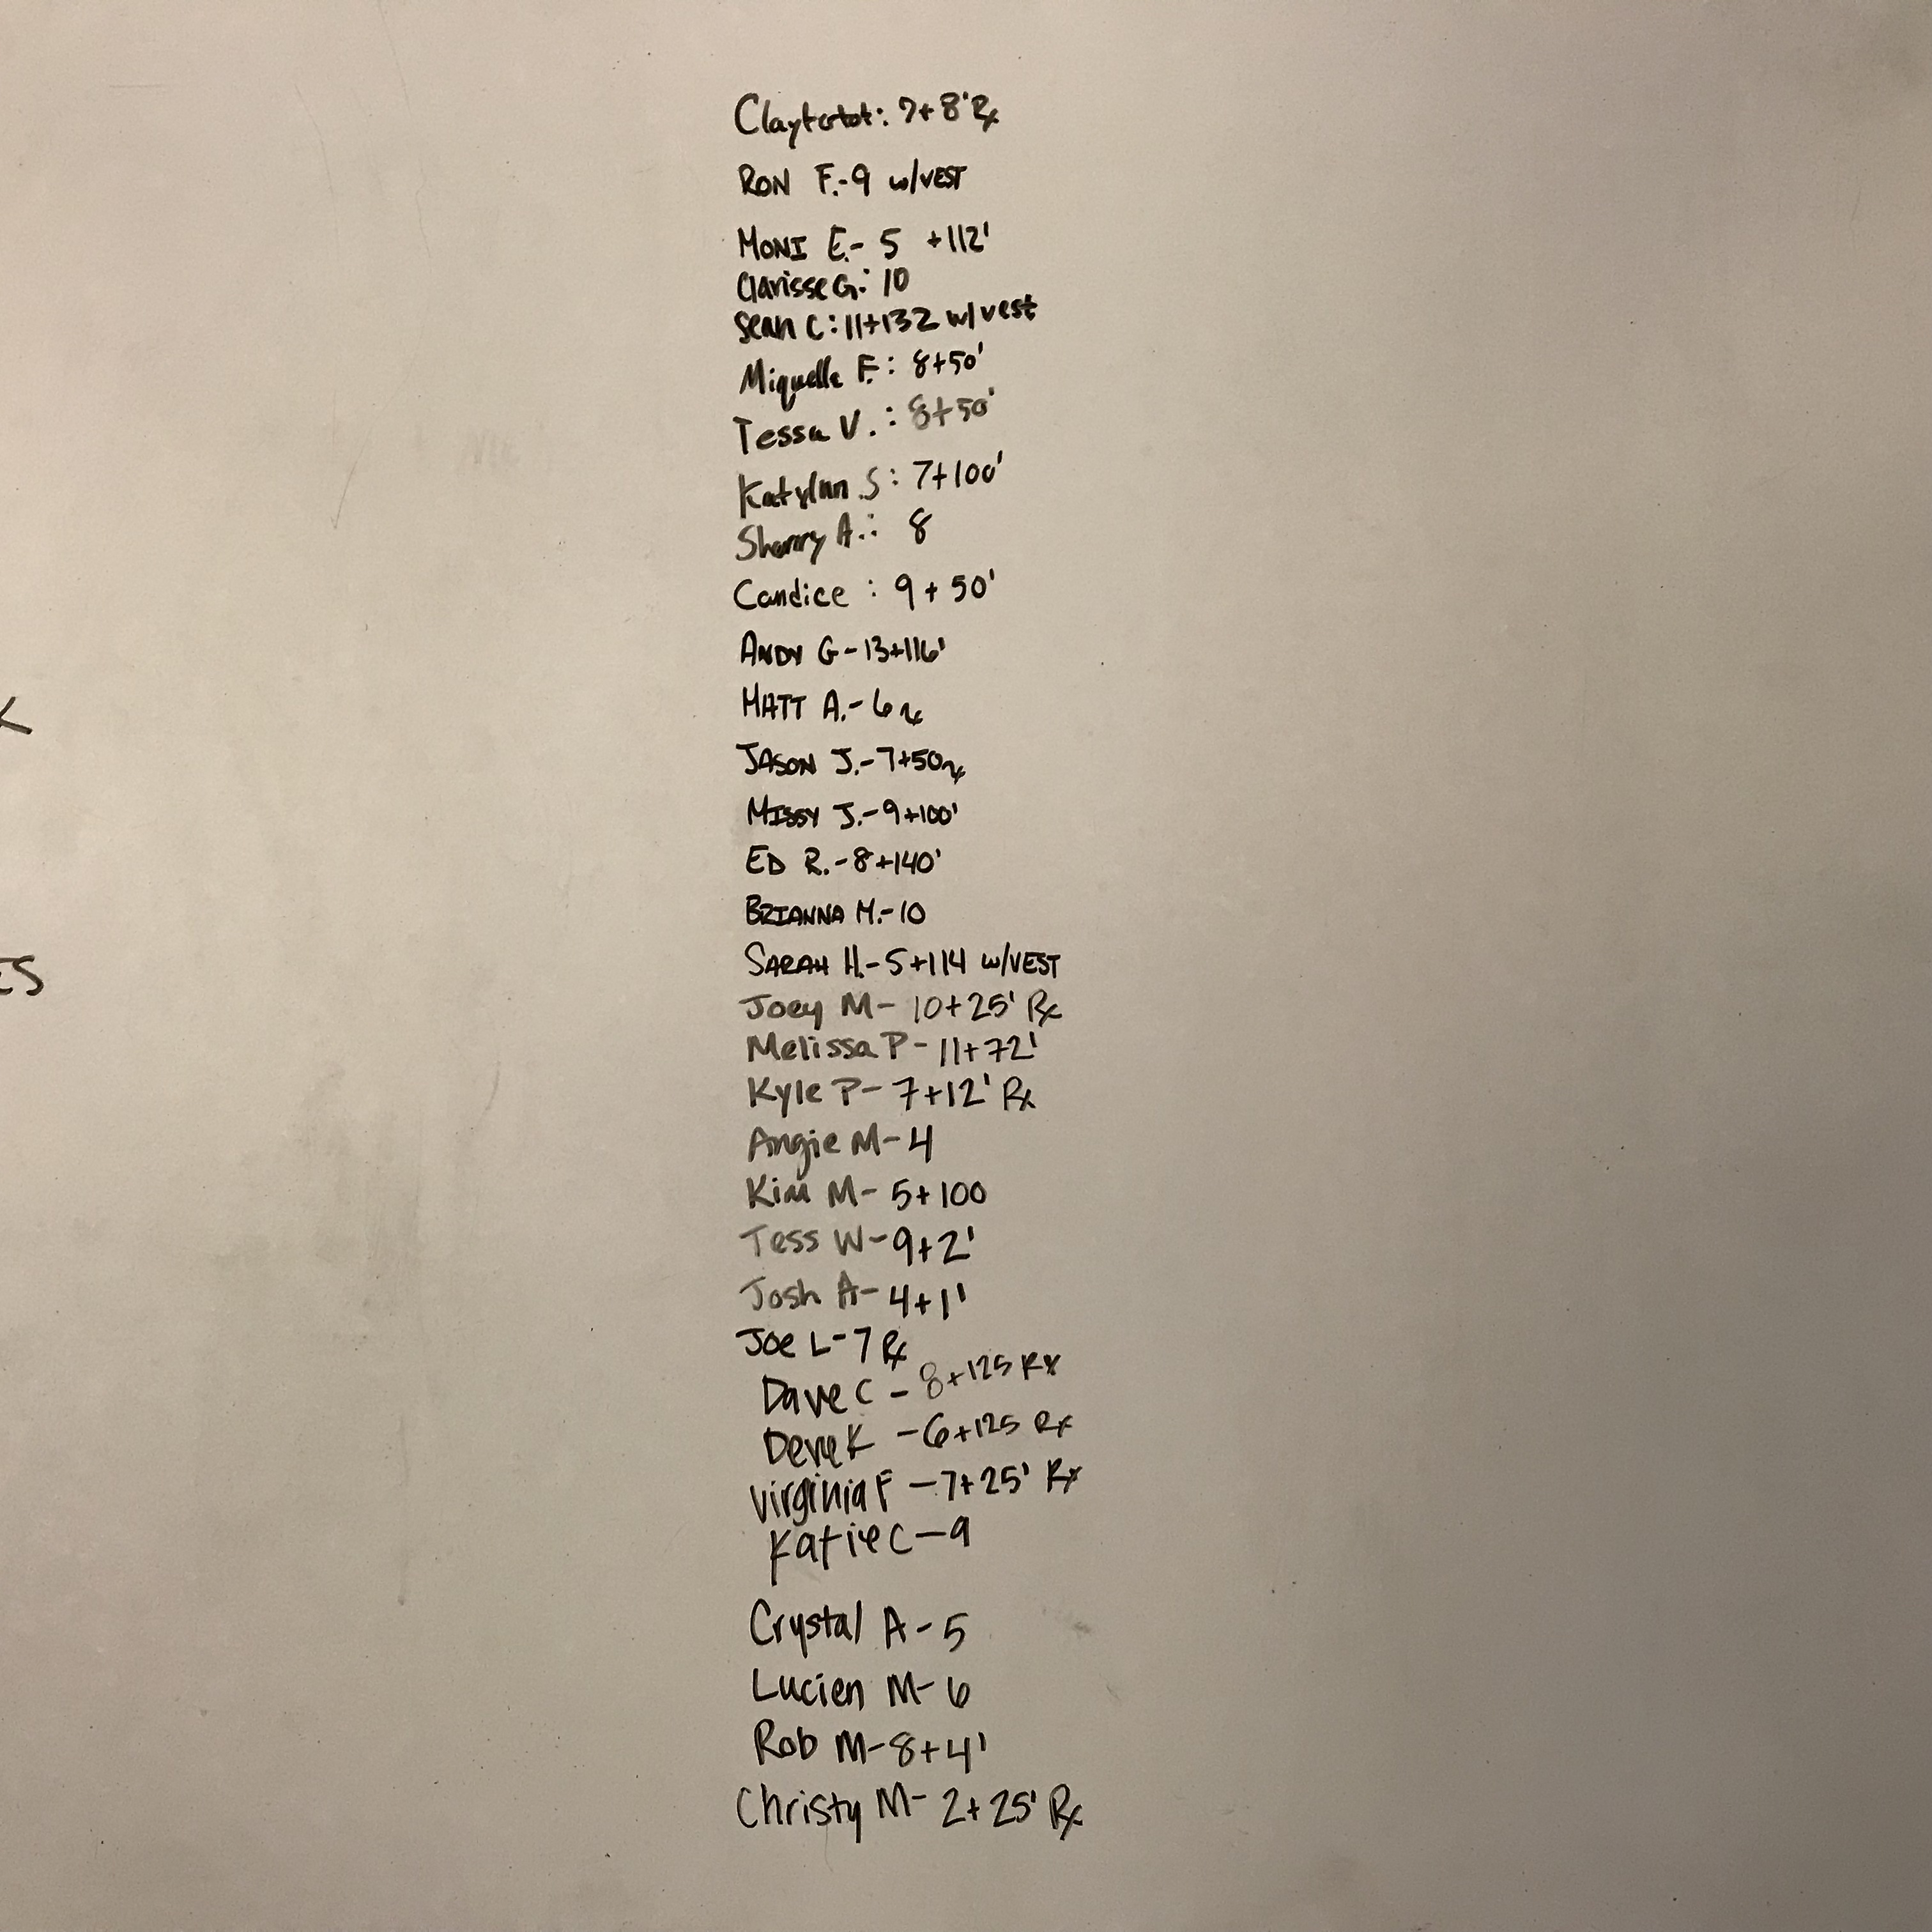 Claytertot: 7+8' Rx
RON F.-9 w/VEST
MONI E.- 5 +112'
Clarisse G.: 10
Sean C: 11+132 w/vest
Miquelle F.: 8+50'
Tessa V.: 8+50'
Katylnn S: 7+100'
Sherry A.: 8
Candice : 9 + 50'
ANDY G-13+116'
MATT A.- 6 rx
JASON J.-7+50 rx
MISSY J.-9+100'
ED R.-8+140'
BRIANNA M.-10
SARAH H.-5+114 w/VEST
Joey M- 10+25' Rx
Melissa P- 11+72'
Kyle P- 7+12' Rx
Angie M- 4
Kim M- 5+100
Tess W-9+2'
Josh A- 4+1'
Joe L-7 Rx
Dave C - 8+125 Rx
Derek -6+125 Rx
Virginia F -7+25' Rx
Katie C-9
Crystal A-5
Lucien M- 6
Rob M-8+4'
Christy M- 2+25' Rx